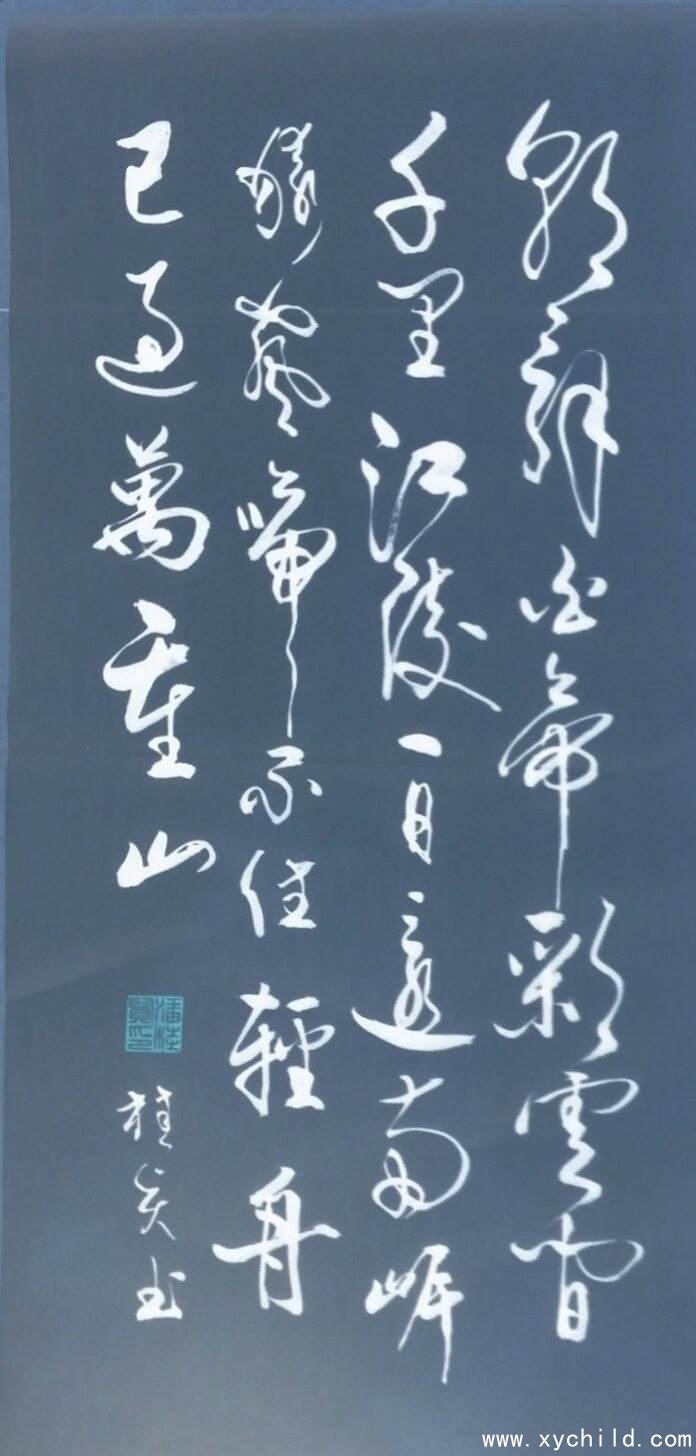 朝辭白帝彩雲間
千里江陵一日還兩岸
猿聲啼不住輕舟
已過萬重山
桂 书
www.xychild.com